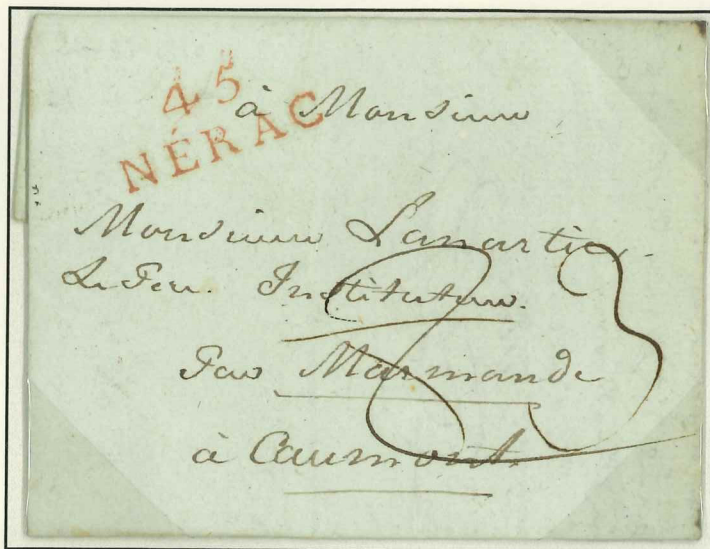 45
NÉRAC
à Monsieur
Monsieur Lanartic
Instituteur.
Par Marmande
à Caumont.
3